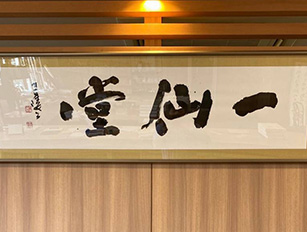 一仙堂